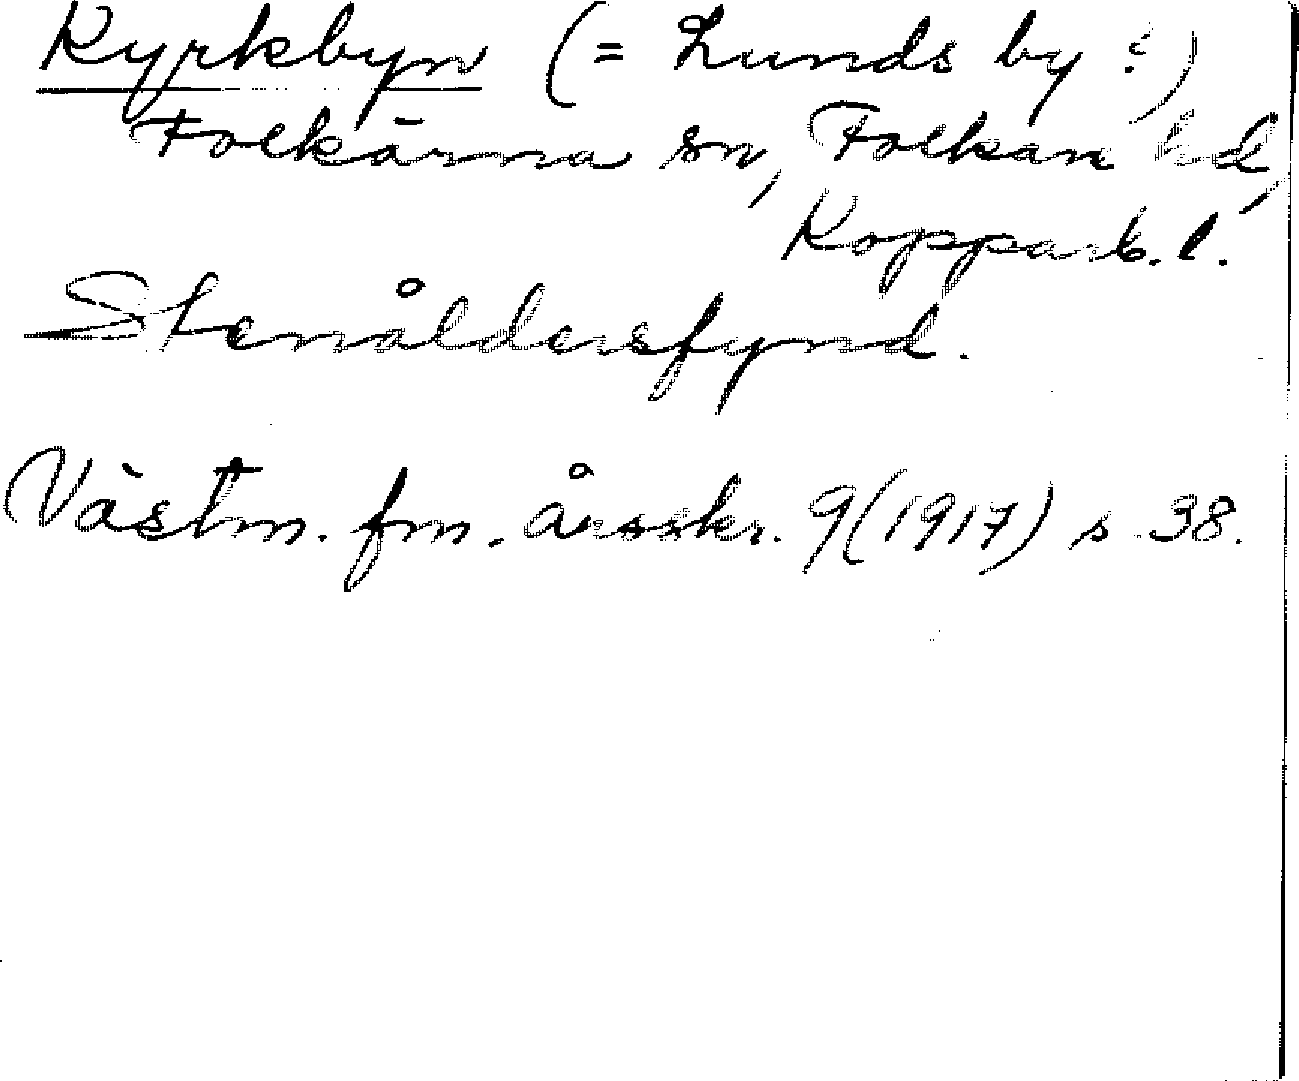 Kyrkbyn (= Lunds by?)
Folkärna sn, Folkare hd,
Kopparb. l.
Stenåldersfynd.
Västm. fm. årsskr. 9(1917) s 38.